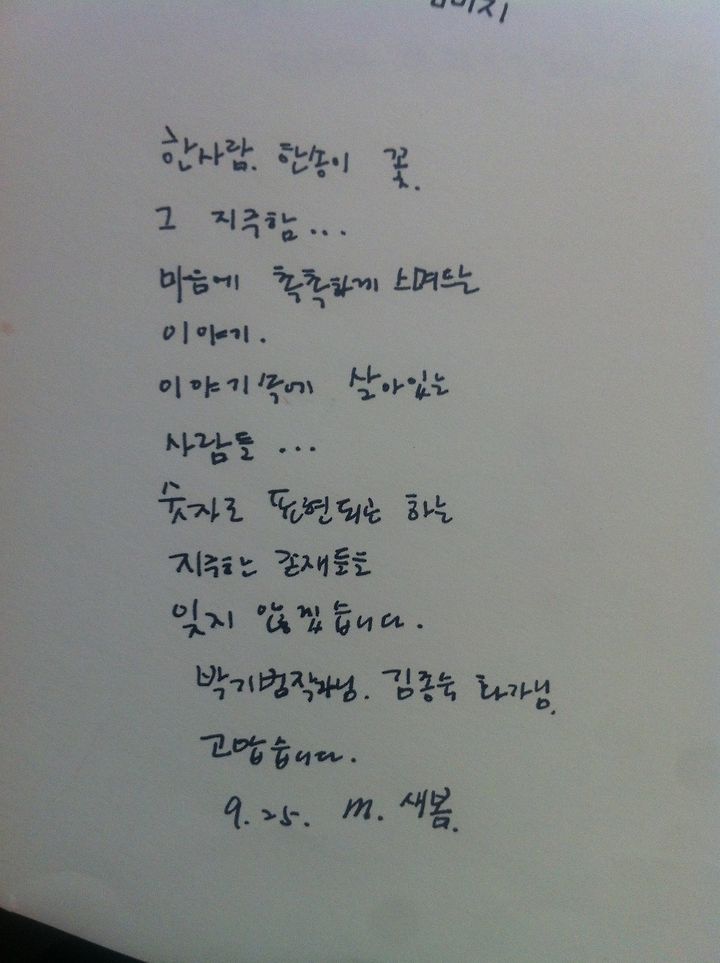 한사람. 한송이 꽃.
그 지중함...
마음에 촉촉하게 스며드는
이야기.
이야기 속에 살아있는
사람들 ...
숫자로 표현되곤 하는
지중한 존재들을
잊지 않겠습니다.
박기범작가님. 김종숙 화가님.
고맙습니다.
9. 25. m. 새봄.